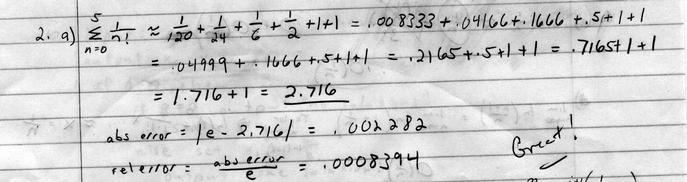 2. a) 5 Σ n=0 1/n! ≈ 1/120 + 1/24 + 1/6 + 1/2 + 1 + 1 = .008333 + .04166 + .1666 + .5 + 1 + 1
= .04999 + .1666 + .5 + 1 + 1 = .2165 + .5 + 1 + 1 = .7165 + 1 + 1
= 1.716 + 1 = 2.716
abs error = |e - 2.716| = .002282
Great!
rel error = abs error / e = .0008394